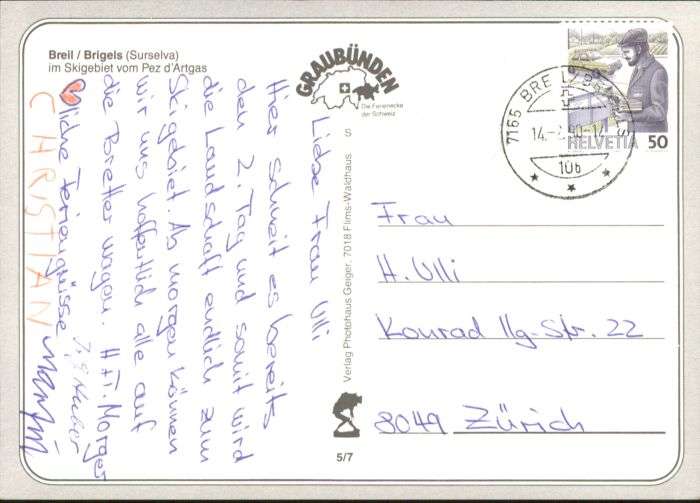 Breil / Brigels (Surselva)
im Skigebiet vom Pez d'Artgas
GRAUBÜNDEN
Die Ferienecke
der Schweiz
S
Verlag Photohaus Geiger, 7018 Flims-Waldhaus
5/7
7165 BREIL/BRIGELS
14.
106
HELVETIA 50
Liebe Frau Ulli
Hier schneit es bereits
den 2. Tag und somit wird
die Landschaft endlich zum
Skigebiet. Ab morgen können
wir uns hoffentlich alle auf
die Bretter wagen.
liche Feriengrüsse
CHRISTIAN
Frau
H. Ulli
Konrad Ilg-Str. 22
8049 Zürich